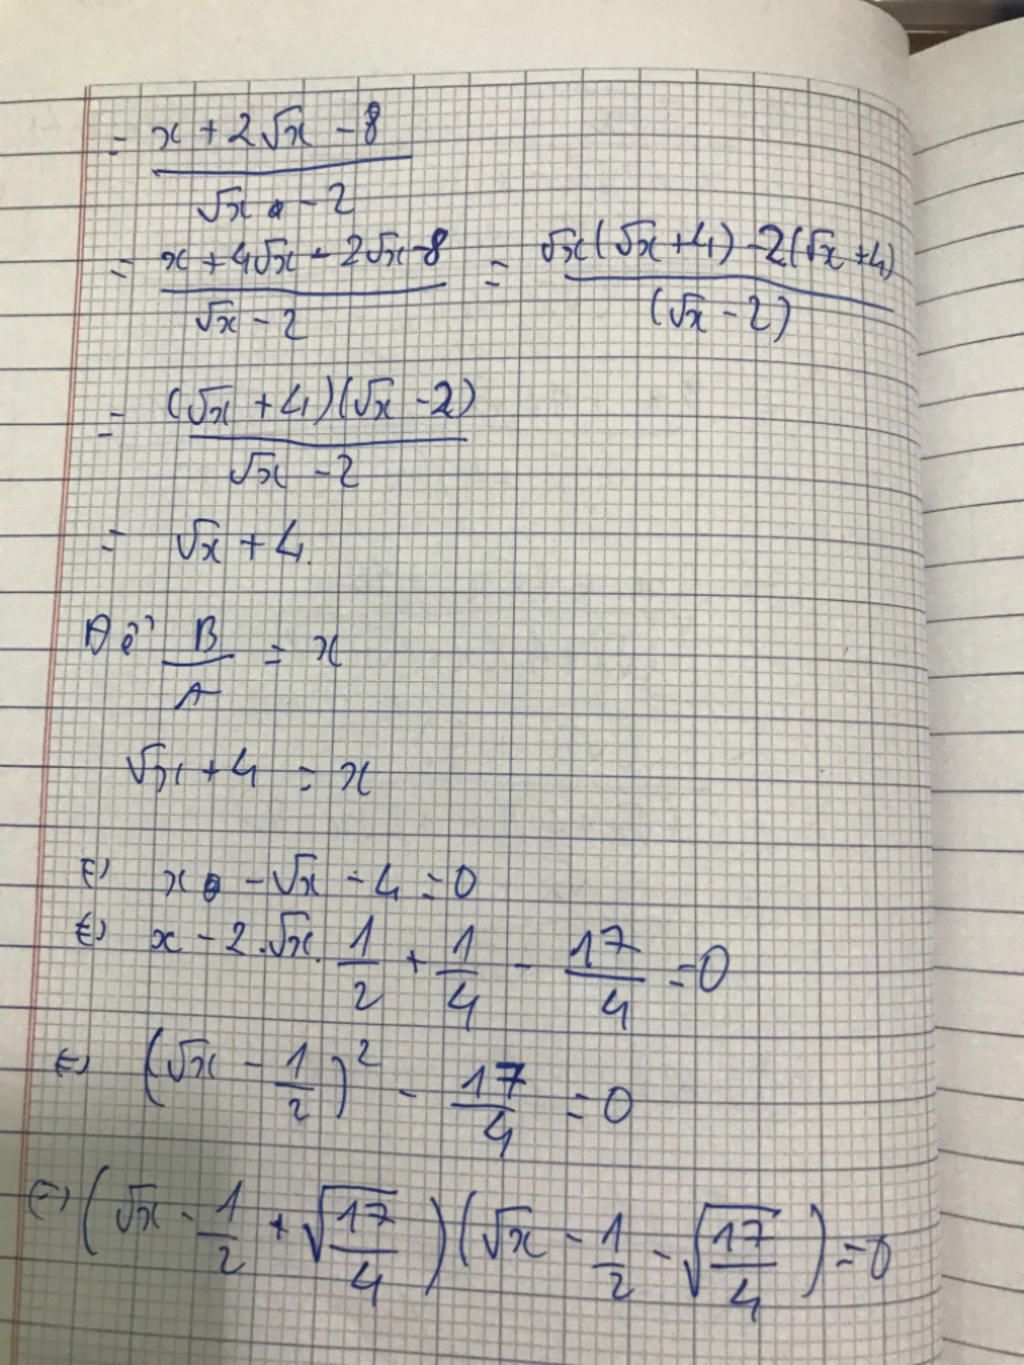 = (x + 2√x - 8)/(√x - 2)
= (x + 4√x - 2√x - 8)/(√x - 2) = (√x(√x + 4) - 2(√x + 4))/((√x - 2))
= ((√x + 4)(√x - 2))/(√x - 2)
= √x + 4.
Để B/A = x
√x + 4 = x
(=) x - √x - 4 = 0
(=) x - 2.√x. 1/2 + 1/4 - 17/4 = 0
(=) (√x - 1/2)² - 17/4 = 0
(=) (√x - 1/2 + √(17/4)) (√x - 1/2 - √(17/4)) = 0